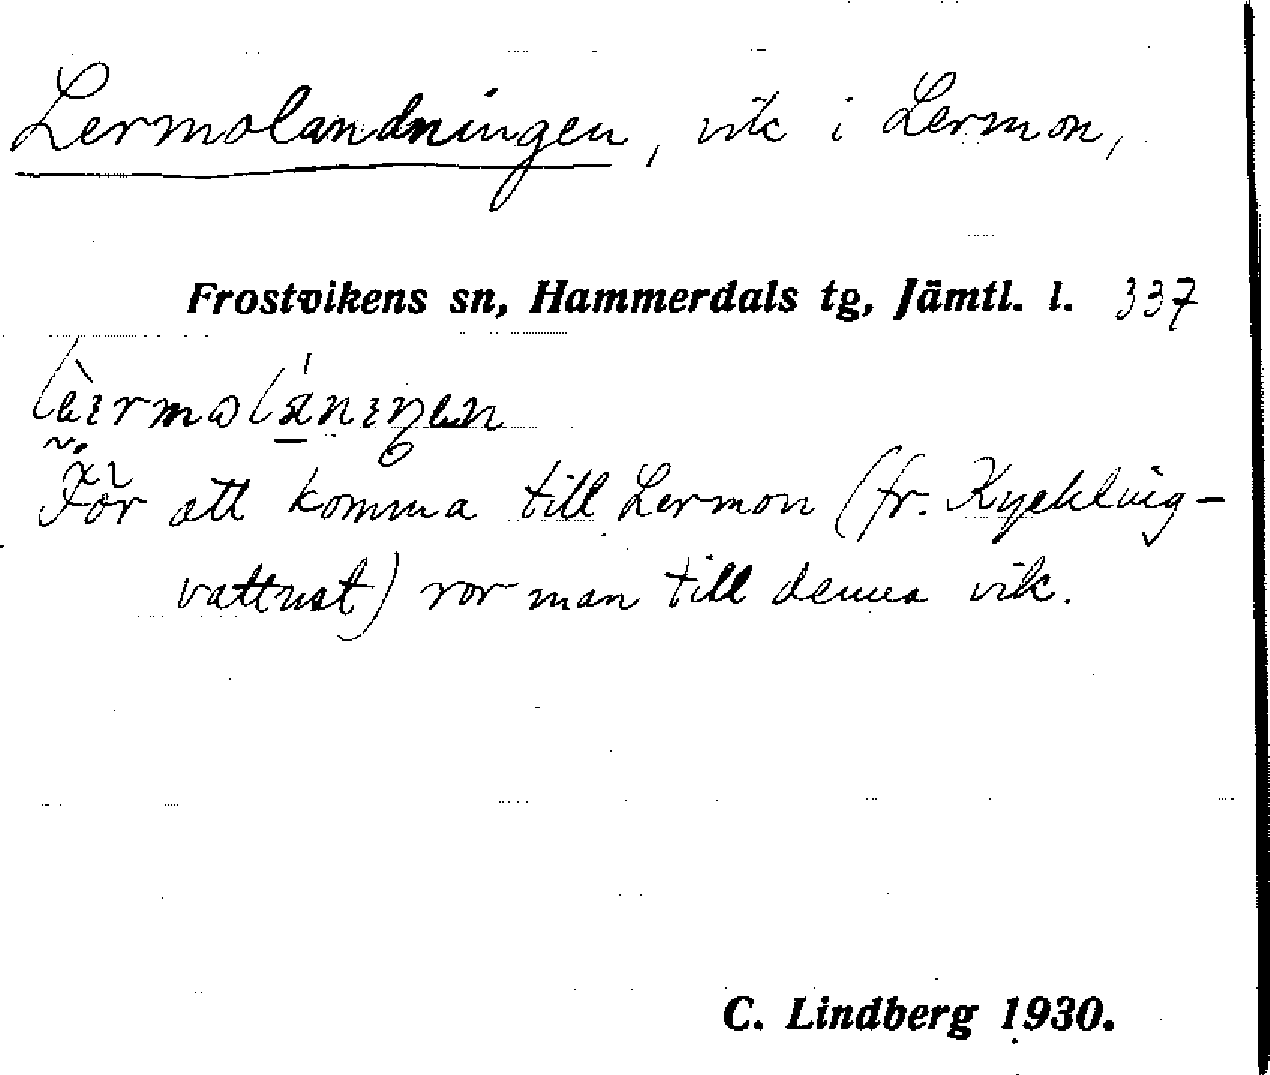 Lermolandningen, vik i Lermon,
Frostvikens sn, Hammerdals tg, Jämtl. l. 337
För att komma till Lermon (fr. Kyckling-
vattnet) ror man till denna vik.
C. Lindberg 1930.